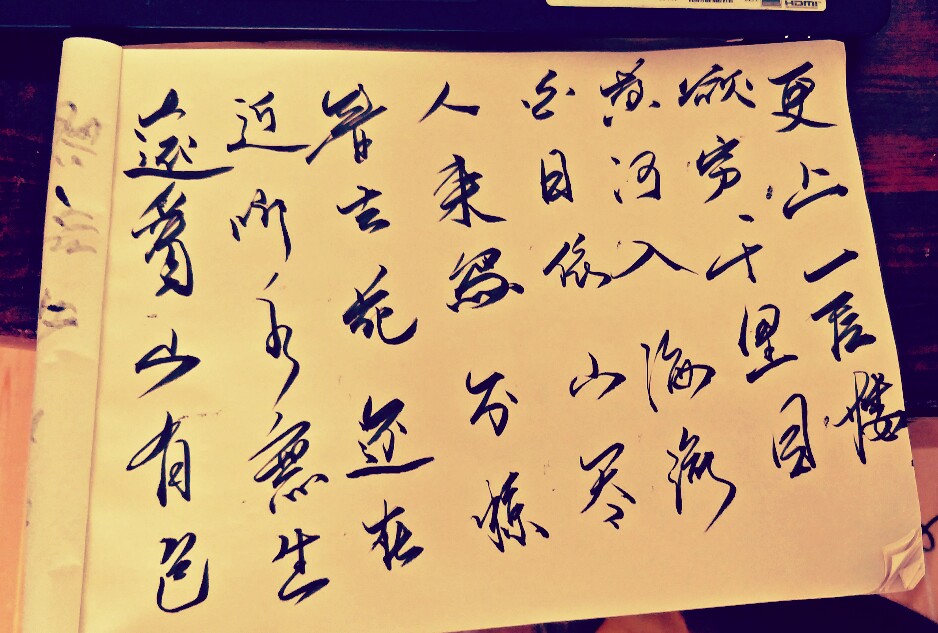 远看山有色
近听水無生
春去花还在
人来鸟不惊
白日依山尽
黄河入海流
欲穷千里目
更上一层楼
HDMI